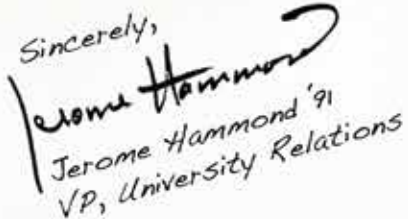 Sincerely,
Jerome Hammond
Jerome Hammond '91
VP, University Relations